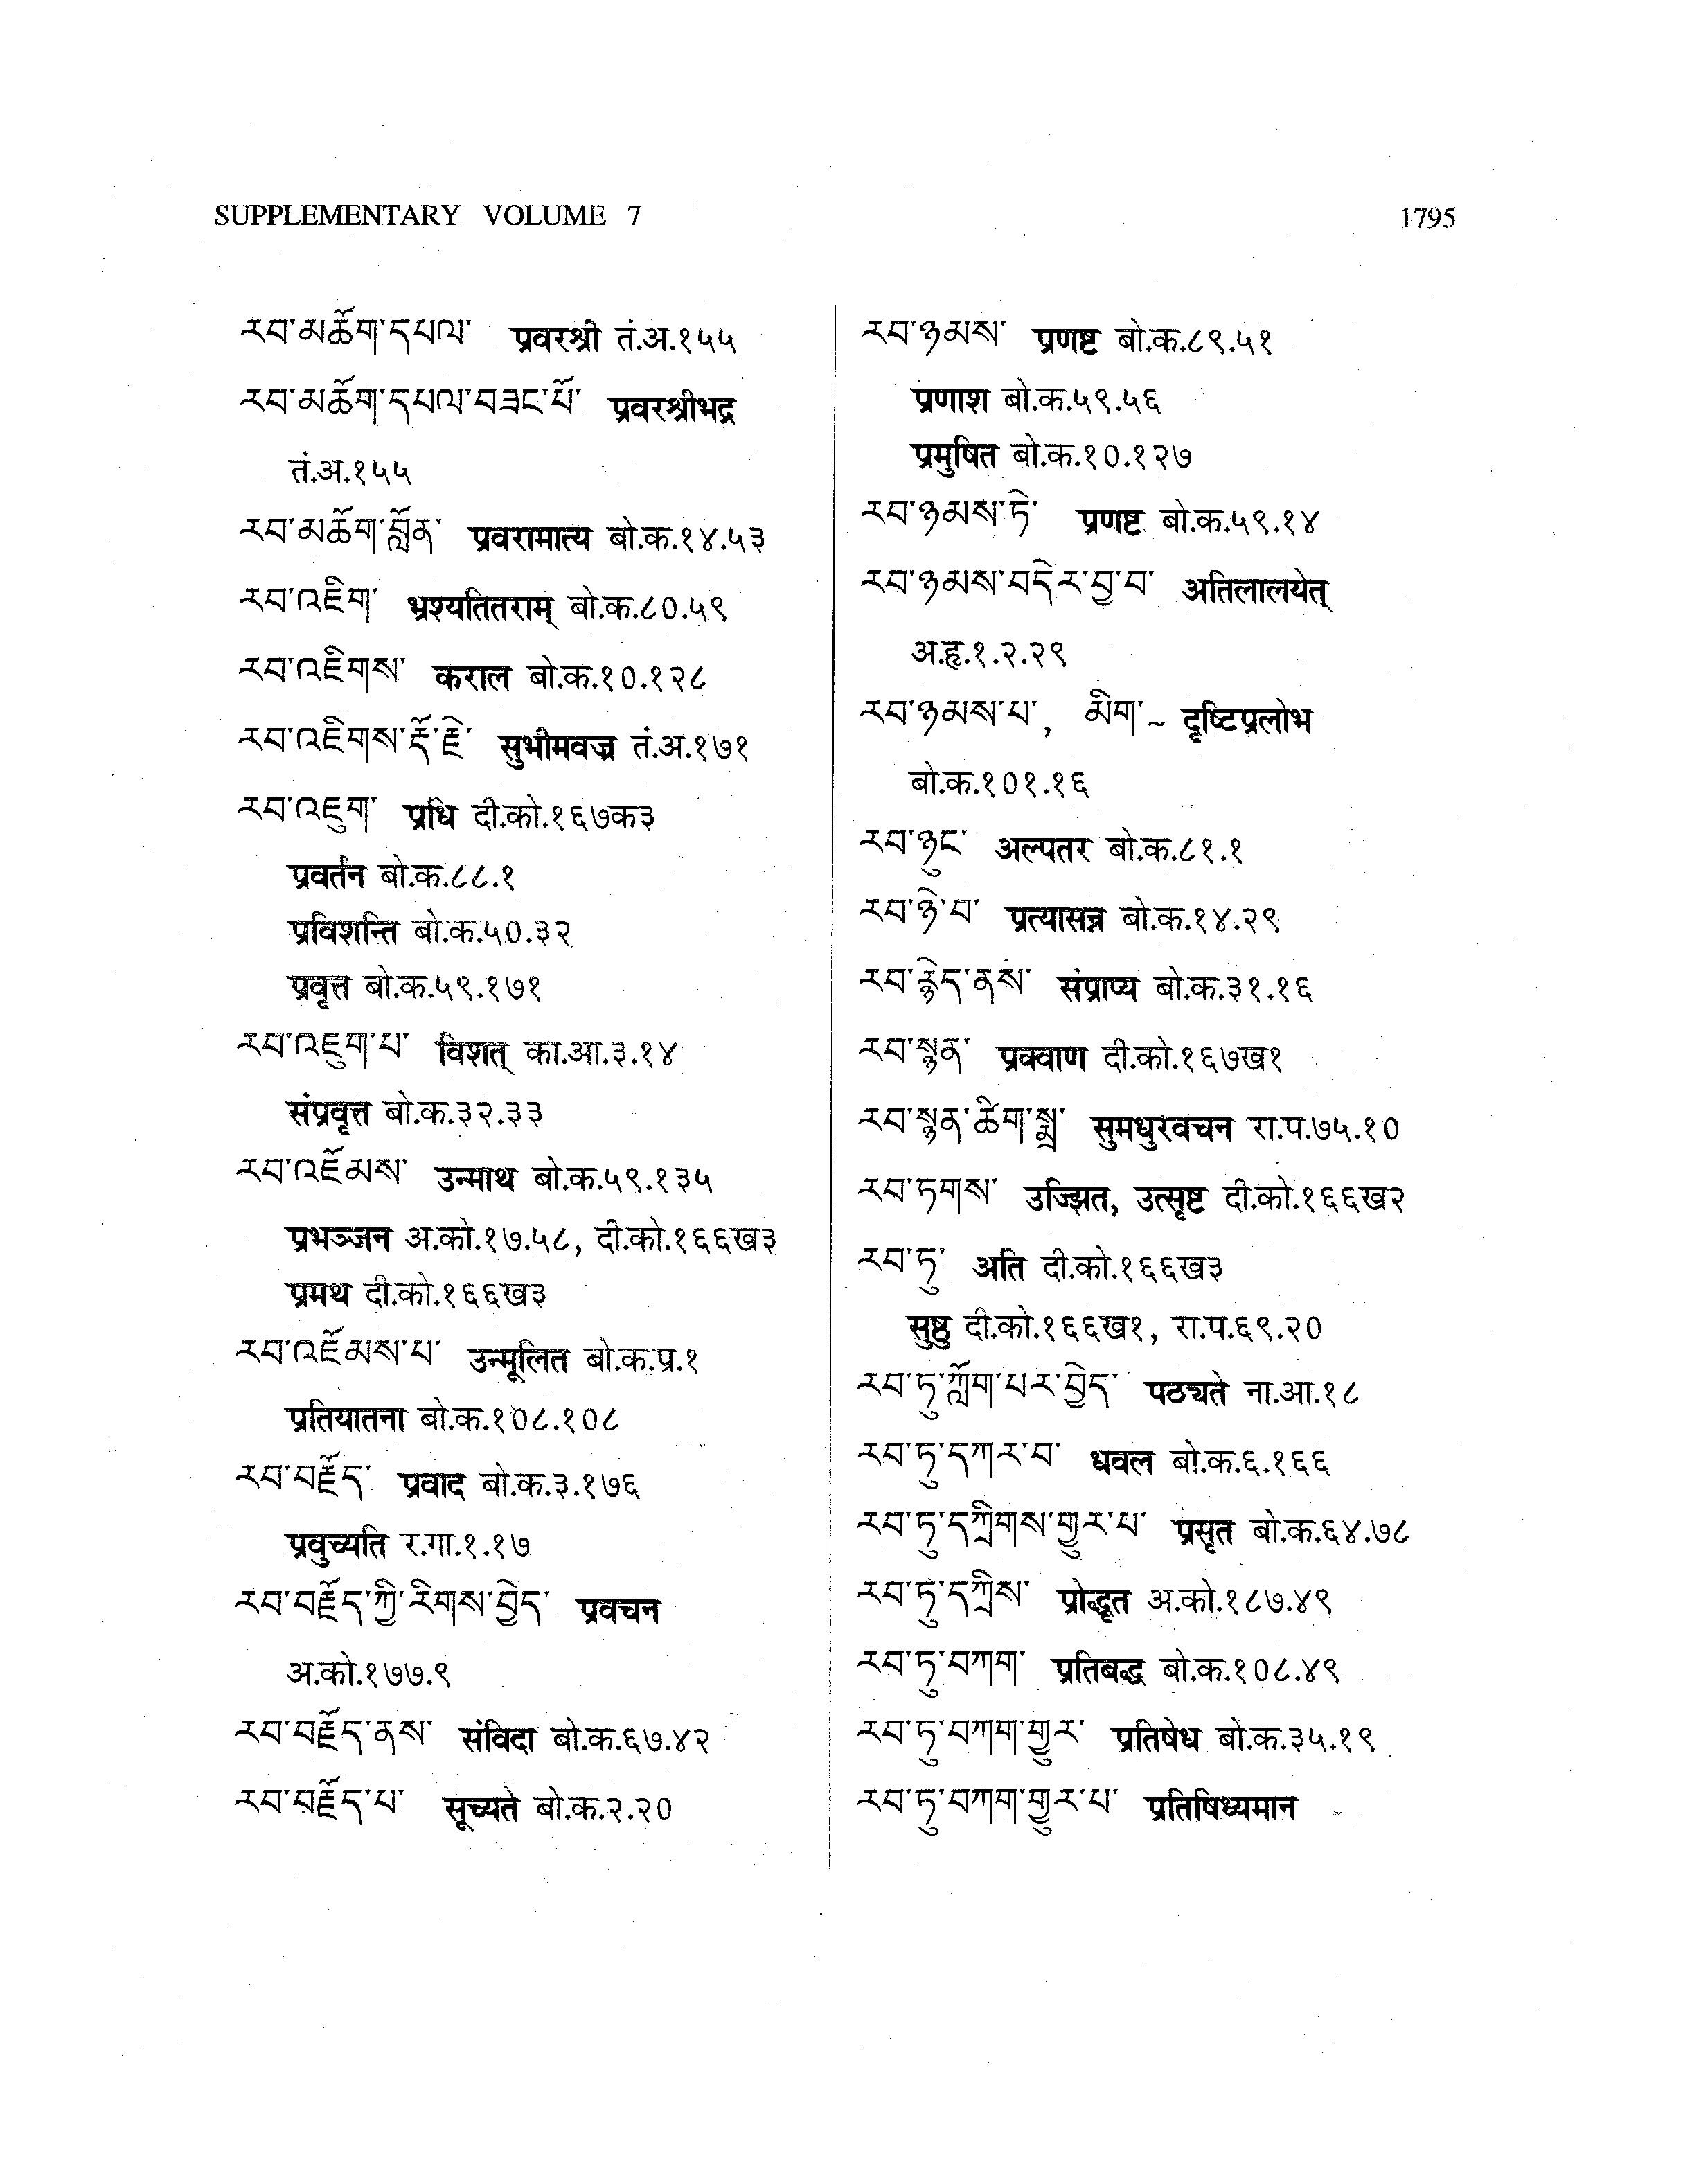 SUPPLEMENTARY VOLUME 7
1795
རབ་མཆོག་དཔལ་ प्रवरश्री तं.अ.१५५
རབ་མཆོག་དཔལ་བཟང་པོ་ प्रवरश्रीभद्र
तं.अ.१५५
རབ་མཆོག་བློན་ प्रवरामात्य बो.क.१४.५३
རབ་འཇིག་ भ्रश्यतितराम् बो.क.८०.५९
རབ་འཇིགས་ कराल बो.क.१०.१२८
རབ་འཇིགས་རྡོ་རྗེ་ सुभीमवज्र तं.अ.१७१
རབ་འཇུག་ प्रधि दी.को.१६७क३
प्रवर्तन बो.क.८८.१
प्रविशन्ति बो.क.५०.३२
प्रवृत्त बो.क.५९.१७१
རབ་འཇུག་པ་ विशत् का.आ.३.१४
संप्रवृत्त बो.क.३२.३३
རབ་འཇོམས་ उन्माथ बो.क.५९.१३५
प्रभञ्जन अ.को.१७.५८, दी.को.१६६ख३
प्रमथ दी.को.१६६ख३
རབ་འཇོམས་པ་ उन्मूलित बो.क.प्र.१
प्रतियातना बो.क.१०८.१०८
རབ་བརྗོད་ प्रवाद बो.क.३.१७६
प्रवुच्यति र.गा.१.१७
རབ་བརྗོད་ཀྱི་རིགས་བྱེད་ प्रवचन
अ.को.१७७.९
རབ་བརྗོད་ནས་ संविदा बो.क.६७.४२
རབ་བརྗོད་པ་ सूच्यते बो.क.२.२०
རབ་ཉམས་ प्रणष्ट बो.क.८९.५१
प्रणाश बो.क.५९.५६
प्रमुषित बो.क.१०.१२७
རབ་ཉམས་ཏེ་ प्रणष्ट बो.क.५९.१४
རབ་ཉམས་བདེར་བྱ་བ་ अतिलालयेत्
अ.हृ.१.२.२९
རབ་ཉམས་པ་, མིག་~ दृष्टिप्रलोभ
बो.क.१०१.१६
རབ་ཉུང་ अल्पतर बो.क.८१.१
རབ་ཉེ་བ་ प्रत्यासन्न बो.क.१४.२९
རབ་རྙེད་ནས་ संप्राप्य बो.क.३१.१६
རབ་སྙན་ प्रक्वाण दी.को.१६७ख१
རབ་སྙན་ཚིག་སྨྲ་ सुमधुरवचन रा.प.७५.१०
རབ་ཏགས་ उज्झित, उत्सृष्ट दी.को.१६६ख२
རབ་ཏུ་ अति दी.को.१६६ख३
सुष्ठु दी.को.१६६ख१, रा.प.६९.२०
རབ་ཏུ་ཀློག་པར་བྱེད་ पठ्यते ना.आ.१८
རབ་ཏུ་དཀར་བ་ धवल बो.क.६.१६६
རབ་ཏུ་དཀྲིགས་གྱུར་པ་ प्रसृत बो.क.६४.७८
རབ་ཏུ་དཀྲིས་ प्रोद्धृत अ.को.१८७.४९
རབ་ཏུ་བཀག་ प्रतिबद्ध बो.क.१०८.४९
རབ་ཏུ་བཀག་གྱུར་ प्रतिषेध बो.क.३५.१९
རབ་ཏུ་བཀག་གྱུར་པ་ प्रतिषिध्यमान